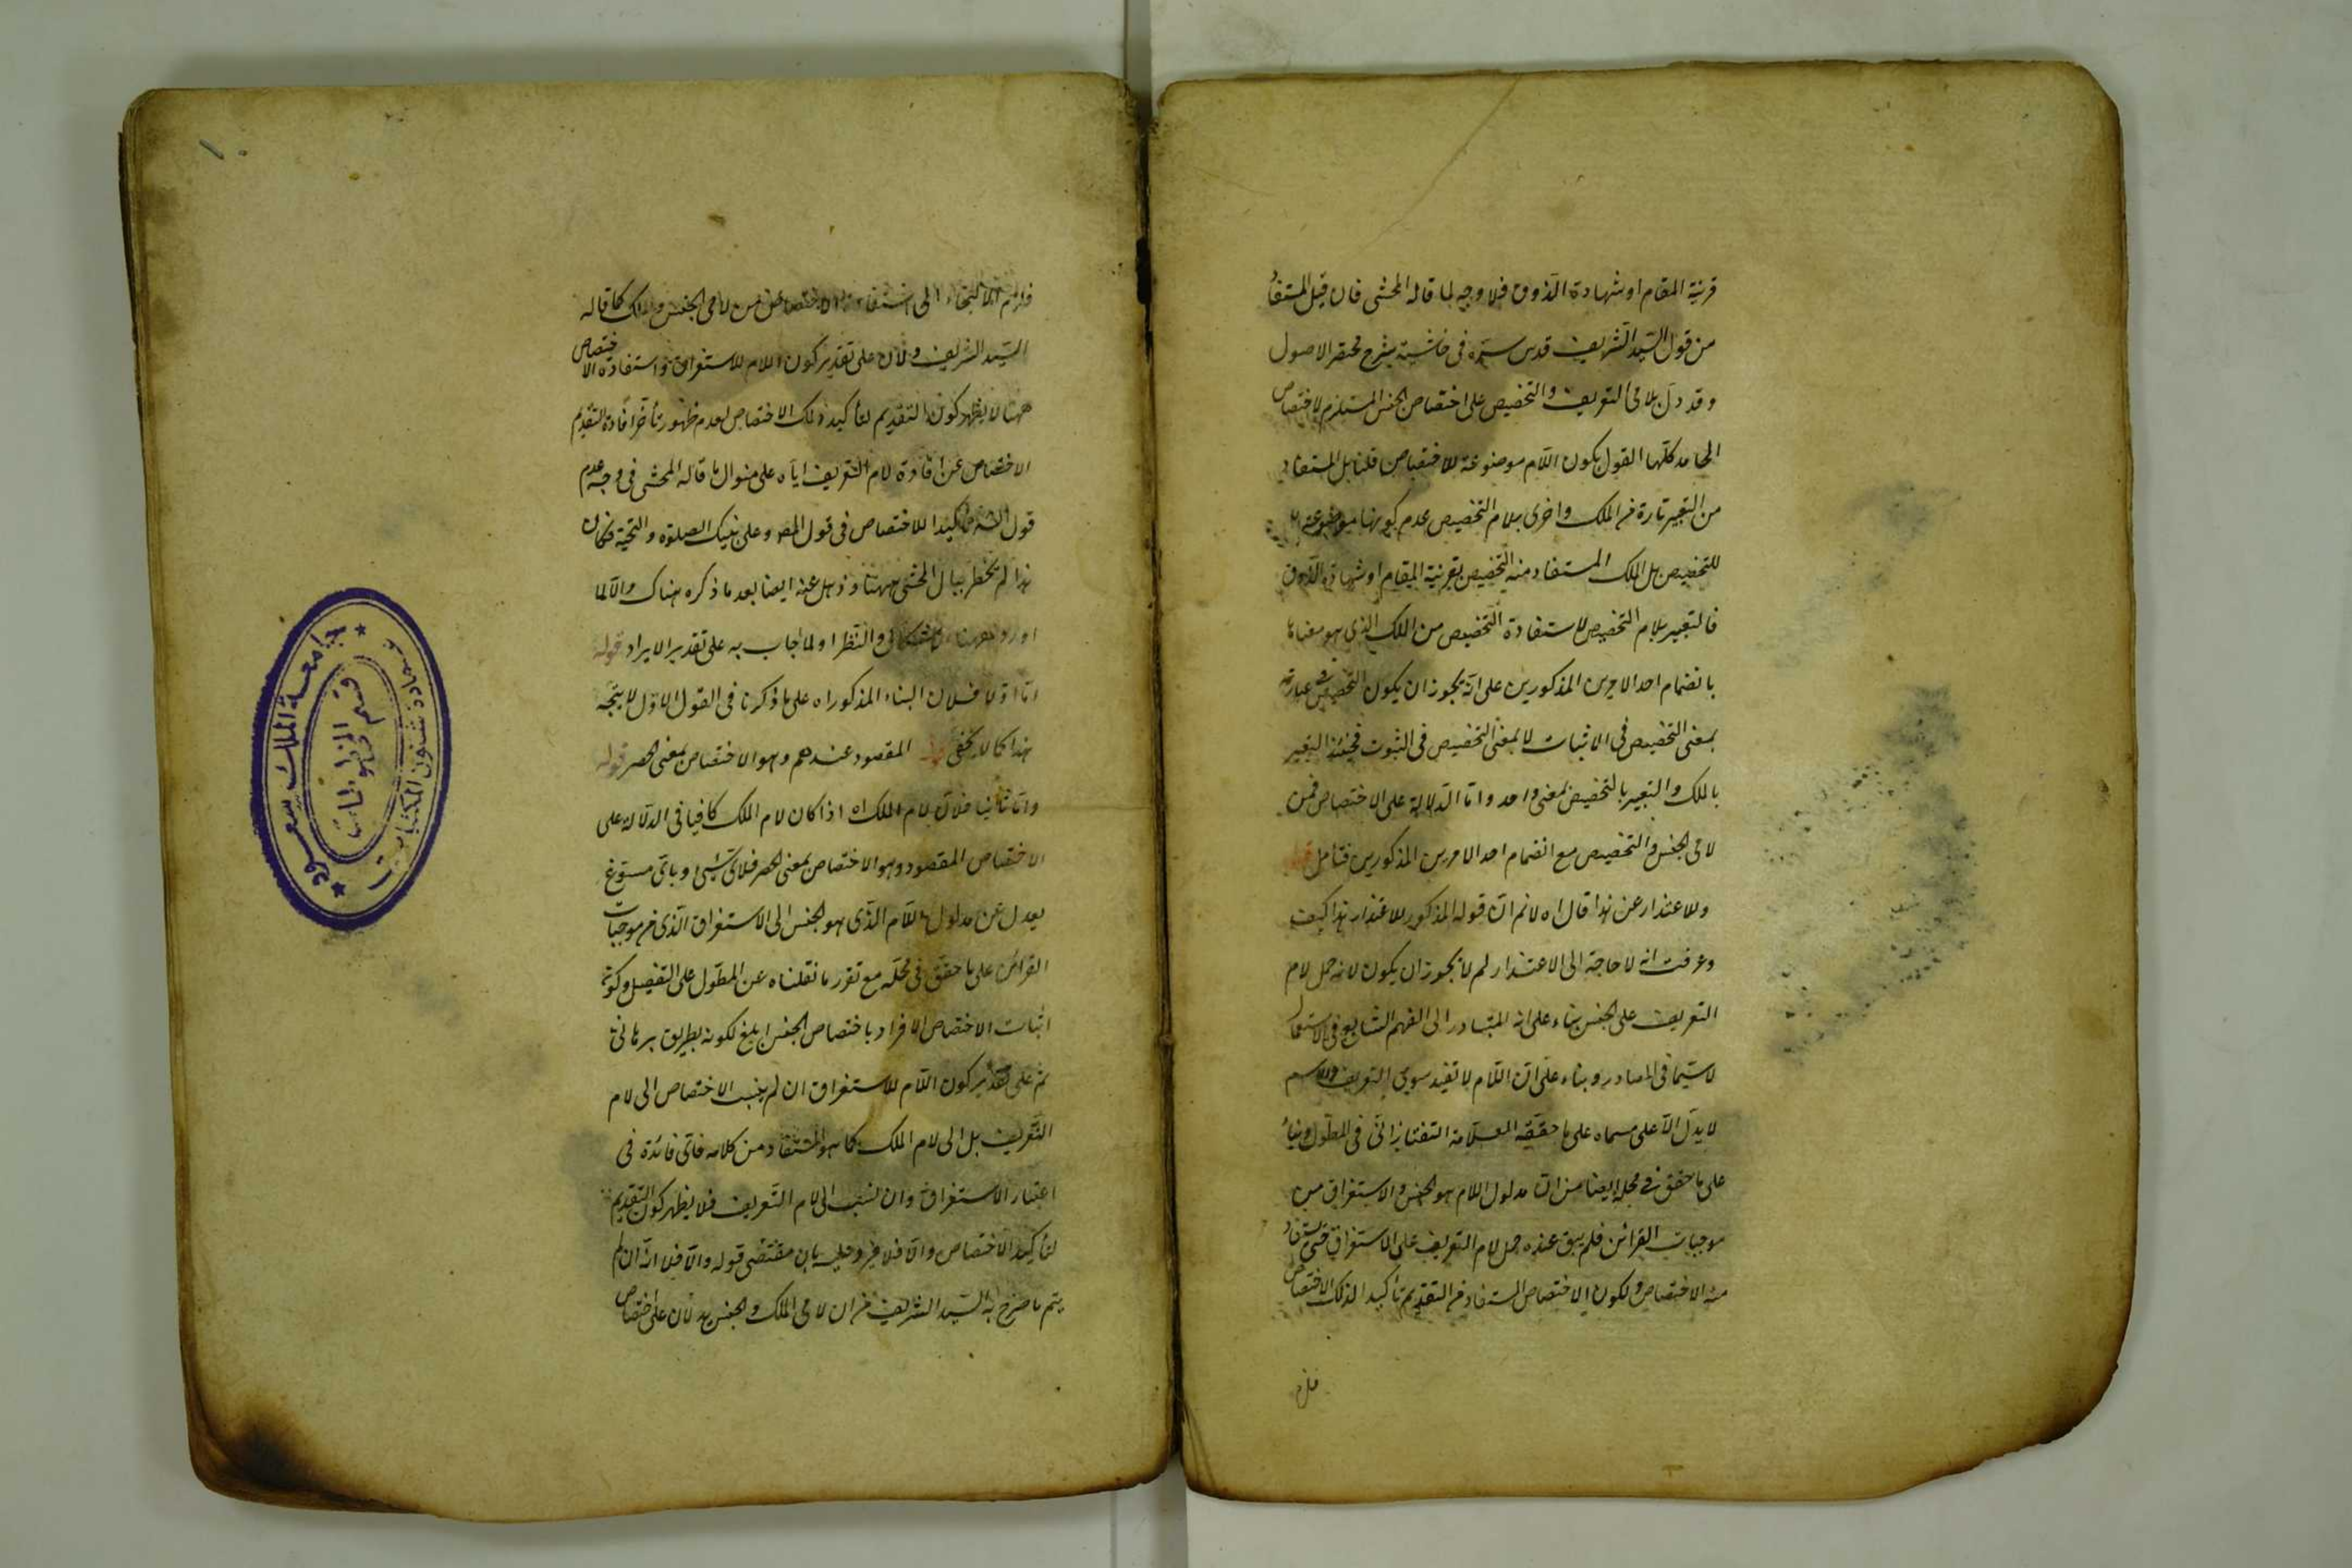 قرينة المقام او شهادة الذوق فلا وجه لما قاله المحشى فان قيل المستفاد
من قول السيد الشريف قدس سره فى حاشية شرح مختصر الاصول
وقد دل بلامى التعريف والتخصيص على اختصاص الجنس المستلزم لاختصاص
المحامد كلها القول بكون اللام موضوعة للاختصاص قلنا بل المستفاد
من التعبير تارة بلام الملك واخرى بلام التخصيص عدم كونها موضوعة
للتخصيص بل الملك المستفاد منه التخصيص بقرينة المقام او شهادة الذوق
فالتعبير بلام التخصيص لاستفادة التخصيص من الملك الذى هو معناها
بانضمام احد الامرين المذكورين على انه يجوز ان يكون التخصيص فى عبارته
بمعنى التخصيص فى الاثبات لا بمعنى التخصيص فى الثبوت فحينئذ التعبير
بالملك والتعبير بالتخصيص بمعنى واحد واما الدلالة على الاختصاص فمن
لامى الجنس والتخصيص مع انضمام احد الامرين المذكورين فتأمل قوله
وللاعتذار عن هذا قال اه لانم ان قوله المذكور للاعتذار هذا كيف
وعرفت انه لا حاجة الى الاعتذار لم لا يجوز ان يكون لانه حمل لام
التعريف على الجنس بناء على انه المتبادر الى الفهم الشايع فى الاستعمال
لا سيما فى المصادر وبناء على ان اللام لا تفيد سوى التعريف والاسم
لا يدل الا على مسماه على ما حققه العلامة التفتازانى فى المطول وبناء
على ما حقق فى محله ايضا من ان مدلول اللام هو الجنس والاستغراق من
موجبات القرائن فلم يبق عنده حمل لام التعريف على الاستغراق حتى يستفاد
منه الاختصاص ولكون الاختصاص المستفاد من التقديم تأكيدا لذلك الاختصاص
فلزم
فلزم الالتجاء الى استفادة الاختصاص من لامى الجنس والملك كما قاله
السيد الشريف ولان على تقدير كون اللام للاستغراق واستفادة الاختصاص
ههنا لا يظهر كون التقديم لتأكيد ذلك الاختصاص لعدم ظهور تأخر افادة التقديم
الاختصاص عن افادة لام التعريف اياه على منوال ما قاله المحشى فى وجه عدم
قول الش تأكيدا للاختصاص فى قول المص وعلى نبيك الصلوة والتحية فكان
هذا لم يخطر ببال المحشى ههنا وذهل عنه ايضا بعد ما ذكره هناك والا لما
اورد ههنا والنظر او لما اجاب به على تقدير الايراد قوله
اما اولا فلان البناء المذكور اه على ما ذكرنا فى القول الاول لا يتجه
هذا كما لا يخفى قوله المقصود عندهم وهو الاختصاص بمعنى الحصر قوله
واما ثانيا فلان لام الملك اه اذا كان لام الملك كافيا فى الدلالة على
الاختصاص المقصود وهو الاختصاص بمعنى الحصر فلاى شئ وباى مسوغ
يعدل عن مدلول اللام الذى هو الجنس الى الاستغراق الذى من موجبات
القرائن على ما حقق فى محله مع تقرر ما نقلناه عن المطول على التفصيل وكون
اثبات الاختصاص الافراد باختصاص الجنس ابلغ لكونه بطريق برهانى
ثم على تقدير كون اللام للاستغراق ان لم ينسب الاختصاص الى لام
التعريف بل الى لام الملك كما هو المستفاد من كلامه فاى فائدة فى
اعتبار الاستغراق وان نسب الى لام التعريف فلا يظهر كون التقديم
لتأكيد الاختصاص والا فلا بان مقتضى قوله والا فلا انه ان لم
يتم ما صرح به السيد الشريف من ان لامى الملك والجنس يدلان على اختصاص
جامعة الملك سعود
عمادة شئون المكتبات
قسم المخطوطات